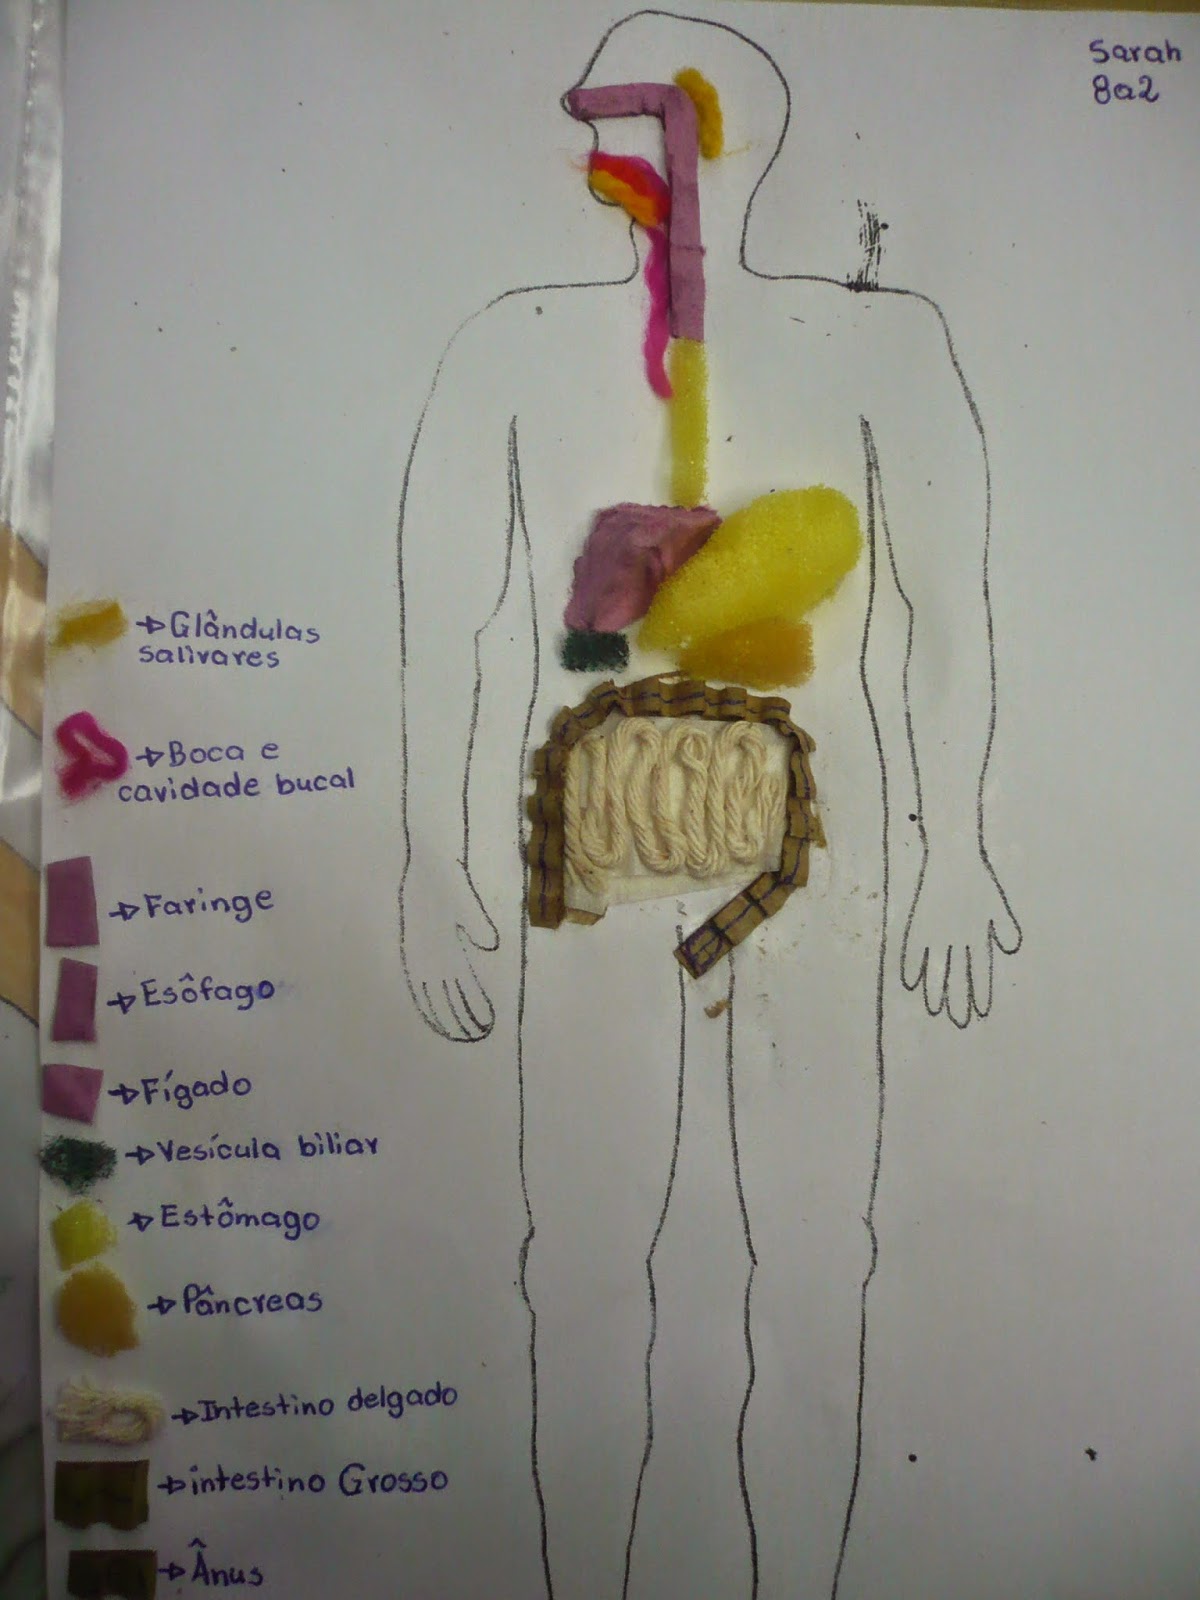 Sarah
8a2
Glândulas
salivares
Boca e
cavidade bucal
Faringe
Esôfago
Fígado
Vesícula biliar
Estômago
Pâncreas
Intestino delgado
intestino Grosso
Ânus